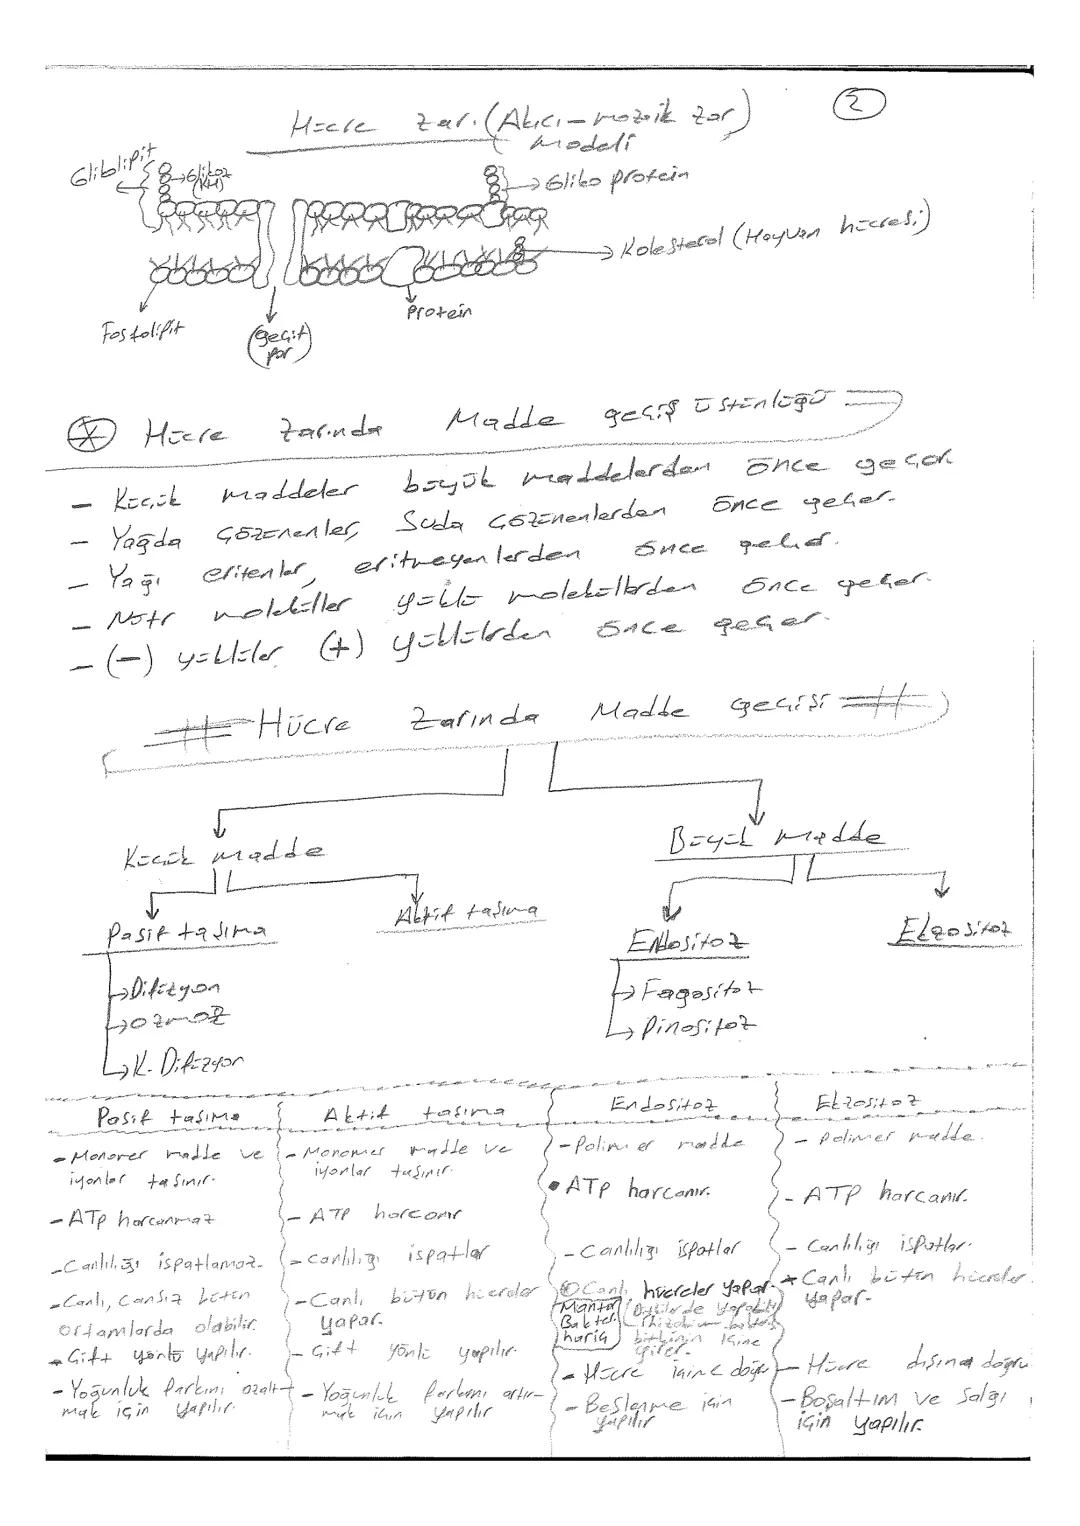 2
Hücre Zarı (Akıcı-mozaik zar)
modeli
Glikolipit
Glikoz
(KH)
Gliko protein
Kolesterol (Hayvan hücresi)
Fosfolipit
(geçit
por)
Protein
* Hücre Zarında Madde geçiş üstünlüğü
- Küçük maddeler büyük maddelerden önce geçer
- Yağda çözünenler, Suda çözünenlerden önce geçer.
- Yağı eritenler, eritmeyenlerden önce geçer.
- Nötr moleküller yüklü moleküllerden önce geçer.
- (-) yüklüler (+) yüklülerden önce geçer.
Hücre Zarında Madde geçişi
Küçük madde
Büyük madde
Pasif taşıma
Aktif taşıma
Endositoz
Ekzositoz
→ Difüzyon
→ Ozmoz
→ K. Difüzyon
→ Fagositoz
→ Pinositoz
Pasif taşıma
- Monomer madde ve
iyonlar taşınır.
- ATP harcanmaz
- Canlılığı ispatlamaz.
- Canlı, cansız bütün
ortamlarda olabilir.
- Çift yönlü yapılır.
- Yoğunluk farkını azalt-
mak için yapılır.
Aktif taşıma
- Monomer madde ve
iyonlar taşınır.
- ATP harcanır
- Canlılığı ispatlar
- Canlı bütün hücreler
yapar.
- Çift yönlü yapılır.
- Yoğunluk farkını artır-
mak için yapılır
Endositoz
- Polimer madde
• ATP harcanır.
- Canlılığı ispatlar
Canlı hücreler yapar.
Mantar
Bakteri
hariç
bitkinin içine
girer.
- Hücre içine doğru
- Beslenme için
yapılır
Ekzositoz
- Polimer madde.
- ATP harcanır.
- Canlılığı ispatlar.
* Canlı bütün hücreler
yapar.
- Hücre dışına doğru
- Boşaltım ve salgı
için yapılır.